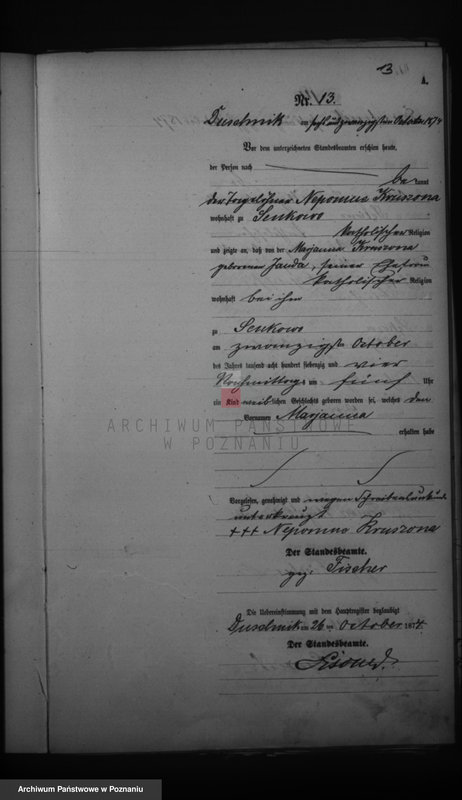 13
A.
Nr. 13.
Duschnik am sechsundzwanzigsten October 1874
Vor dem unterzeichneten Standesbeamten erschien heute,
der Person nach
bekannt
der Tagelöhner Nepomuc Kruszona
wohnhaft zu Senkowo
katholischer Religion
und zeigte an, daß von der Marjanna Kruszona
geborenen Janda, seiner Ehefrau
katholischer Religion
wohnhaft bei ihm
zu Senkowo
am zwanzigsten October
des Jahres tausend acht hundert siebenzig und vier
Nachmittags um fünf Uhr
ein Kind weiblichen Geschlechts geboren worden sei, welches den
Vornamen Marjanna
erhalten habe
ARCHIWUM PAŃSTWOWE
W POZNANIU
Vorgelesen, genehmigt und wegen Schreibensunkunde
unterkreuzt
+++ Nepomuc Kruszona
Der Standesbeamte.
gez. Fischer
Die Uebereinstimmung mit dem Hauptregister beglaubigt
Duschnik am 26 ten October 1874
Der Standesbeamte.
Archiwum Państwowe w Poznaniu
Archiwum Państwowe w Poznaniu